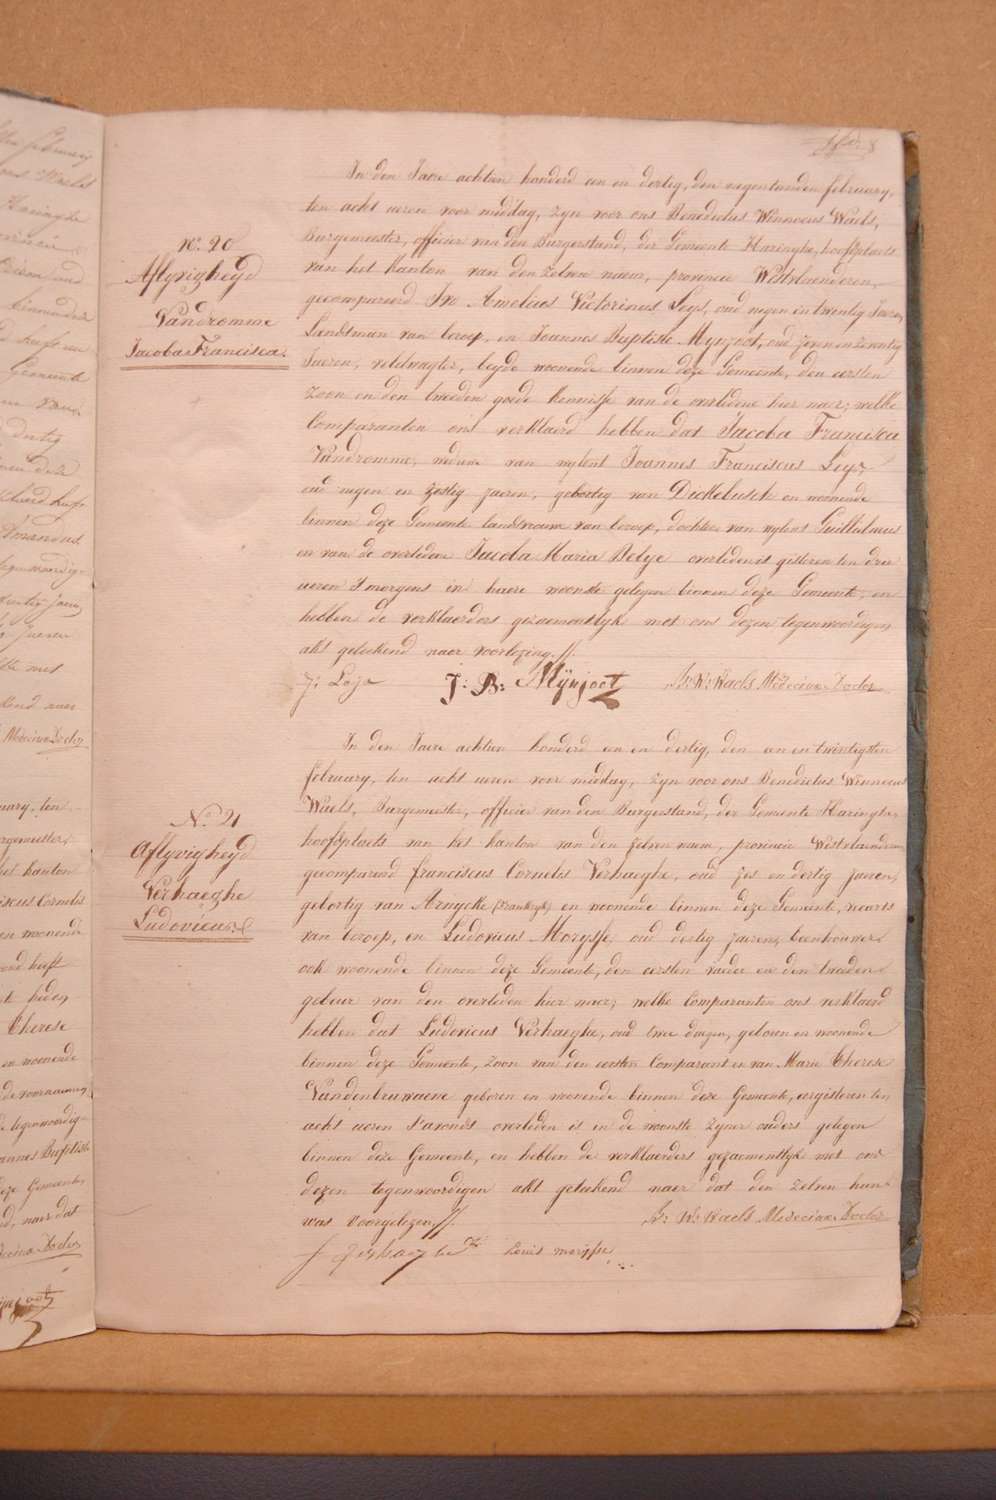 N.º 20
Aflyvigheyd
Vandromme
Jacoba Francisca.
In den Jaere achtien honderd een en dertig, den negentienden february,
ten acht ueren voor middag, zyn voor ons Benedictus Winnocus Waels,
Burgemeester, officier van den Burgerstand, der Gemeente Haringhe, hoofdplaets
van het kanton van den zelven naem, provincie Westvlaenderen,
gecompareerd Ivo Amelius Victorinus Leys, oud negen en twintig Jaeren,
Landsman van beroep, en Joannes Baptiste Mynjoot, oud zeven en zeventig
Jaeren, veldwagter, beyde woonende binnen deze Gemeente, den eersten
zoon en den tweeden goede kennisse van de overledene hier naer, welke
Comparanten ons verklaerd hebben dat Jacoba Francisca
Vandromme, weduwe van wylent Joannes Franciscus Leys,
oud negen en zestig jaeren, geboortig van Dickebusch en woonende
binnen deze Gemeente landsvrouw van beroep, dochter van wylent Guillielmus
en van de overleden Jacoba Maria Bolye overleden is gisteren ten drie
ueren S'morgens in haere woonste gelegen binnen deze Gemeente, en
hebben de verklaerders gezaementlyk met ons dezen tegenwoordigen
akt geteekend naer voorlezing.
J: Leys J: B: Mÿnjoot B: W: Waels Medecinæ Doctor
N.º 21
Aflyvigheyd
Verhaeghe
Ludovicus.
In den Jaere achtien honderd een en dertig, den een en twintigsten
february, ten acht ueren voor middag, zyn voor ons Benedictus Winnocus
Waels, Burgemeester, officier van den Burgerstand, der Gemeente Haringhe,
hoofdplaets van het kanton van den zelven naem, provincie Westvlaenderen
gecompareerd franciscus Cornelis Verhaeghe, oud zes en dertig jaeren,
geboortig van Arnycke (Frankryk) en woonende binnen deze Gemeente,
van beroep, en Ludovicus Morysse, oud dertig jaeren, beenhouwer
ook woonende binnen deze Gemeente, den eersten vader en den tweeden
gebeur van den overleden hier naer, welke Comparanten ons verklaerd
hebben dat Ludovicus Verhaeghe, oud twee daegen, geboren en woonende
binnen deze Gemeente, zoon van den eersten Comparant en van Marie Therese
Vandenbruwaene geboren en woonende binnen deze Gemeente, eergisteren ten
acht ueren S'avonds overleden is in de woonste zyner ouders gelegen
binnen deze Gemeente, en hebben de verklaerders gezaementlyk met ons
dezen tegenwoordigen akt geteekend naer dat den zelven hun
was voorgelezen.
B: W: Waels Medecinæ Doctor
f Verhaeghe Louis morysse